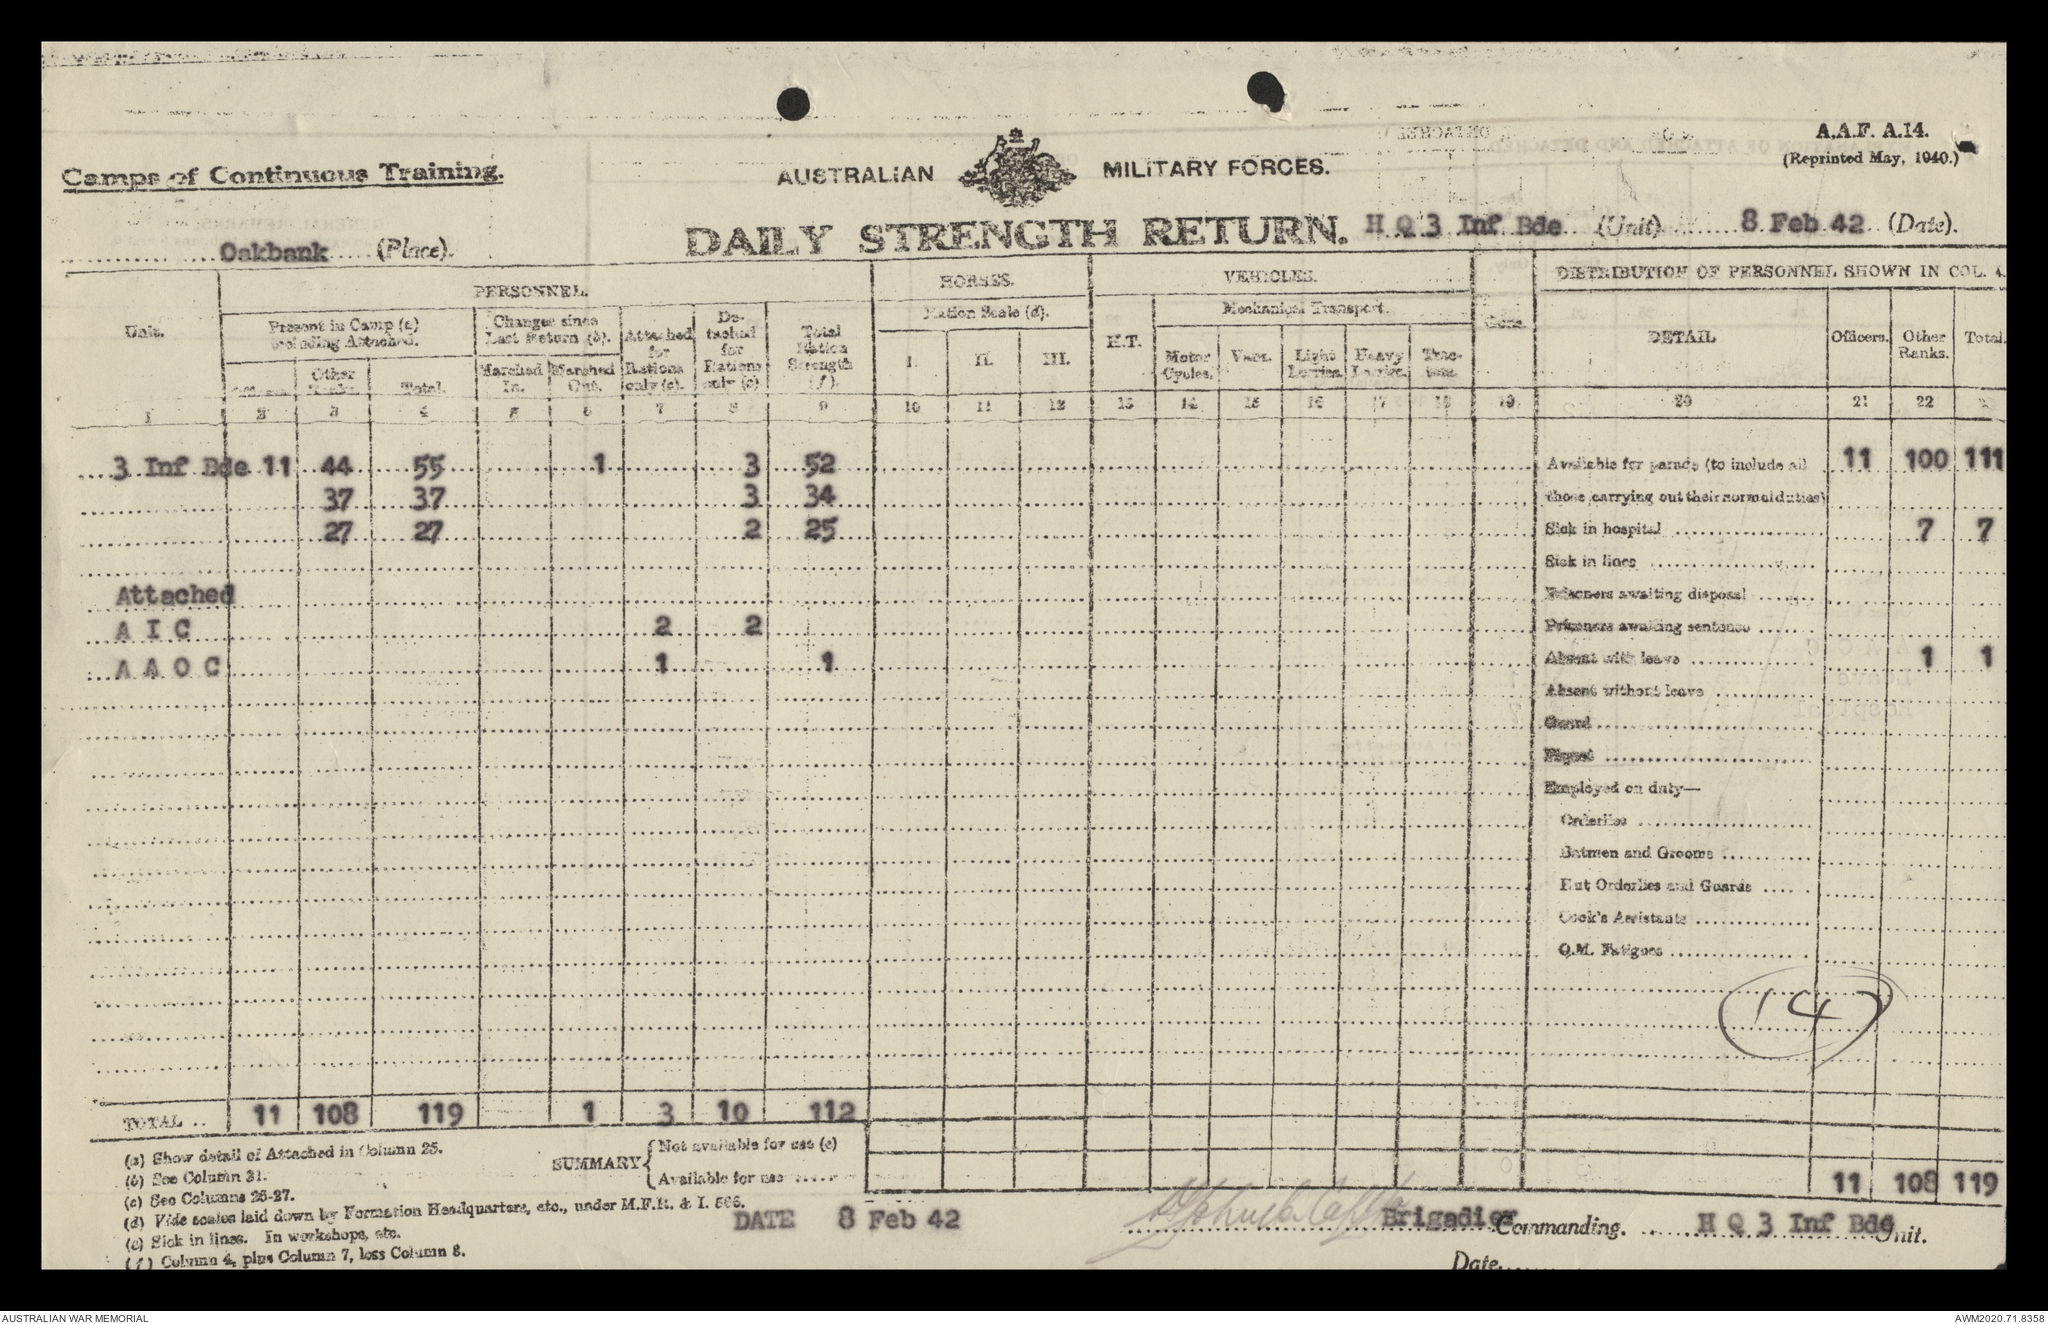 A.A.F. A.14.
(Reprinted May, 1940.)
Camps of Continuous Training.
AUSTRALIAN MILITARY FORCES.
DAILY STRENGTH RETURN. H Q 3 Inf Bde (Unit) 8 Feb 42 (Date).
Oakbank (Place).
PERSONNEL. HORSES. VEHICLES. DISTRIBUTION OF PERSONNEL SHOWN IN COL. 4.
Unit. Present in Camp (a) including Attached. Changes since Last Return (b). Attached for Rations only (c). Detached for Rations only (c) Total Ration Strength (f). Ration Scale (d). H.T. Mechanical Transport. Guns. DETAIL Officers. Other Ranks. Total.
Other Ranks. Total. Marched In. Marched Out. I. II. III. Motor Cycles. Vans. Light Lorries. Heavy Lorries. Tractors.
1 2 3 4 5 6 7 8 9 10 11 12 13 14 15 16 17 18 19 20 21 22
3 Inf Bde 11 44 55 1 3 52 Available for parade (to include all 11 100 111
37 37 3 34 those carrying out their normal duties)
27 27 2 25 Sick in hospital 7 7
Sick in lines
Attached Prisoners awaiting disposal
A I C 2 2 Prisoners awaiting sentence
A A O C 1 1 Absent with leave 1 1
Absent without leave
Guard
Piquet
Employed on duty—
Orderlies
Batmen and Grooms
Hut Orderlies and Guards
Cook's Assistants
Q.M. Fatigues
147
TOTAL .. 11 108 119 1 3 10 112
(a) Show detail of Attached in Column 25.
(b) See Column 31.
(c) See Columns 26-27.
(d) Vide scales laid down by Formation Headquarters, etc., under M.F.R. & I. 566.
(e) Sick in lines. In workshops, etc.
(f) Column 4, plus Column 7, less Column 8.
SUMMARY { Not available for use (e)
Available for use
11 108 119
DATE 8 Feb 42
Brigadier Commanding. H Q 3 Inf Bde Unit.
Date
AUSTRALIAN WAR MEMORIAL AWM2020.71.8358